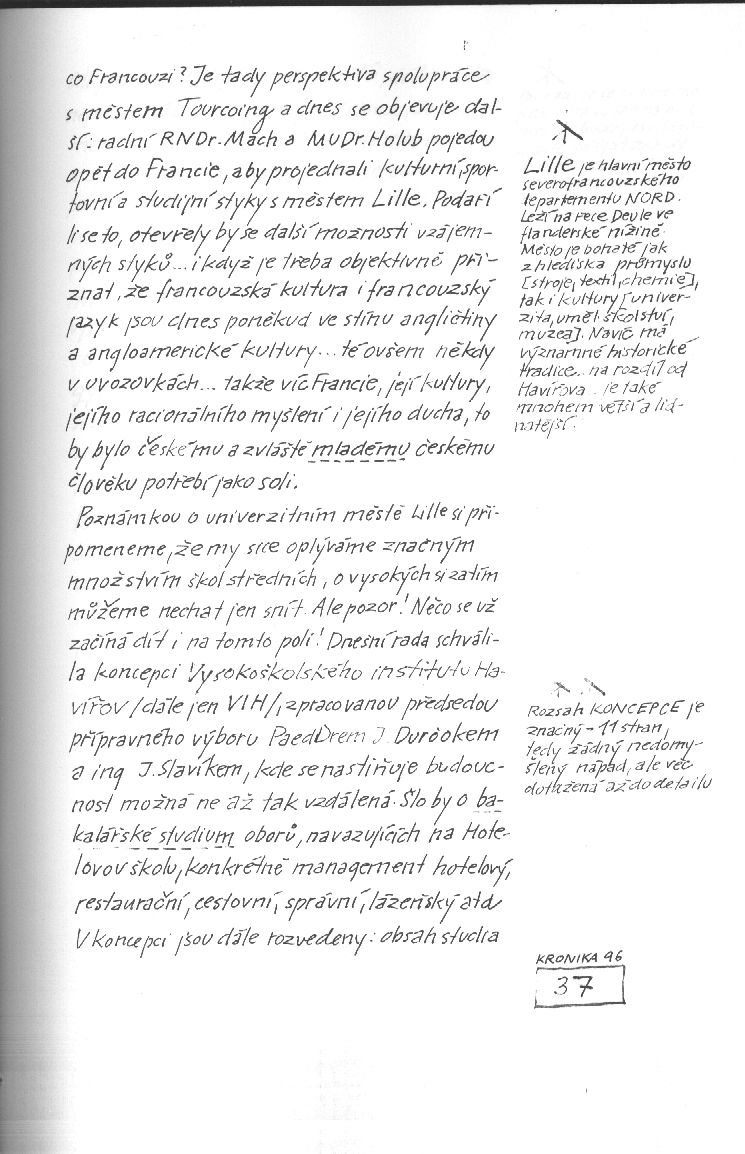 co Francouzi? Je tady perspektiva spolupráce
s městem Tourcoing a dnes se objevuje dal-
ší: radní RNDr. Mach a MUDr. Holub pojedou
opět do Francie, aby projednali kulturní, spor-
tovní a studijní styky s městem Lille. Podaří
li se to, otevřely by se další možnosti vzájem-
ných styků... i když je třeba objektivně při-
znat, že francouzská kultura i francouzský
jazyk jsou dnes poněkud ve stínu angličtiny
a angloamerické kultury... té ovšem někdy
v uvozovkách... takže víc Francie, její kultury,
jejího racionálního myšlení i jejího ducha, to
by bylo českému a zvláště mladému českému
člověku potřebí jako soli.
Poznámkou o univerzitním městě Lille si při-
pomeneme, že my sice oplýváme značným
množstvím škol středních, o vysokých si zatím
můžeme nechat jen snít. Ale pozor! Něco se už
začíná dít i na tomto poli! Dnešní rada schváli-
la koncepci Vysokoškolského institutu Ha-
vířov /dále jen VIH/, zpracovanou předsedou
přípravného výboru PaedDrem J. Durčokem
a ing J. Slavíkem, kde se nastiňuje budouc-
nost možná ne až tak vzdálená. Šlo by o ba-
kalářské studium oborů, navazujících na Hote-
lovou školu, konkrétně management hotelový,
restaurační, cestovní, správní, lázeňský atd
V koncepci jsou dále rozvedeny: obsah studia
Lille je hlavní město
severofrancouzského
departementu NORD.
Leží na řece Deule ve
flanderské nížině.
Město je bohaté jak
z hlediska průmyslu
[stroje, textil, chemie],
tak i kultury [univer-
zita, uměl. školství,
muzea]. Navíc má
významné historické
tradice.. na rozdíl od
Havířova .. je také
mnohem větší a lid-
natější.
Rozsah KONCEPCE je
značný - 11 stran,
tedy žádný nedomy-
šlený nápad, ale věc
dotažená až do detailu
KRONIKA 96
37